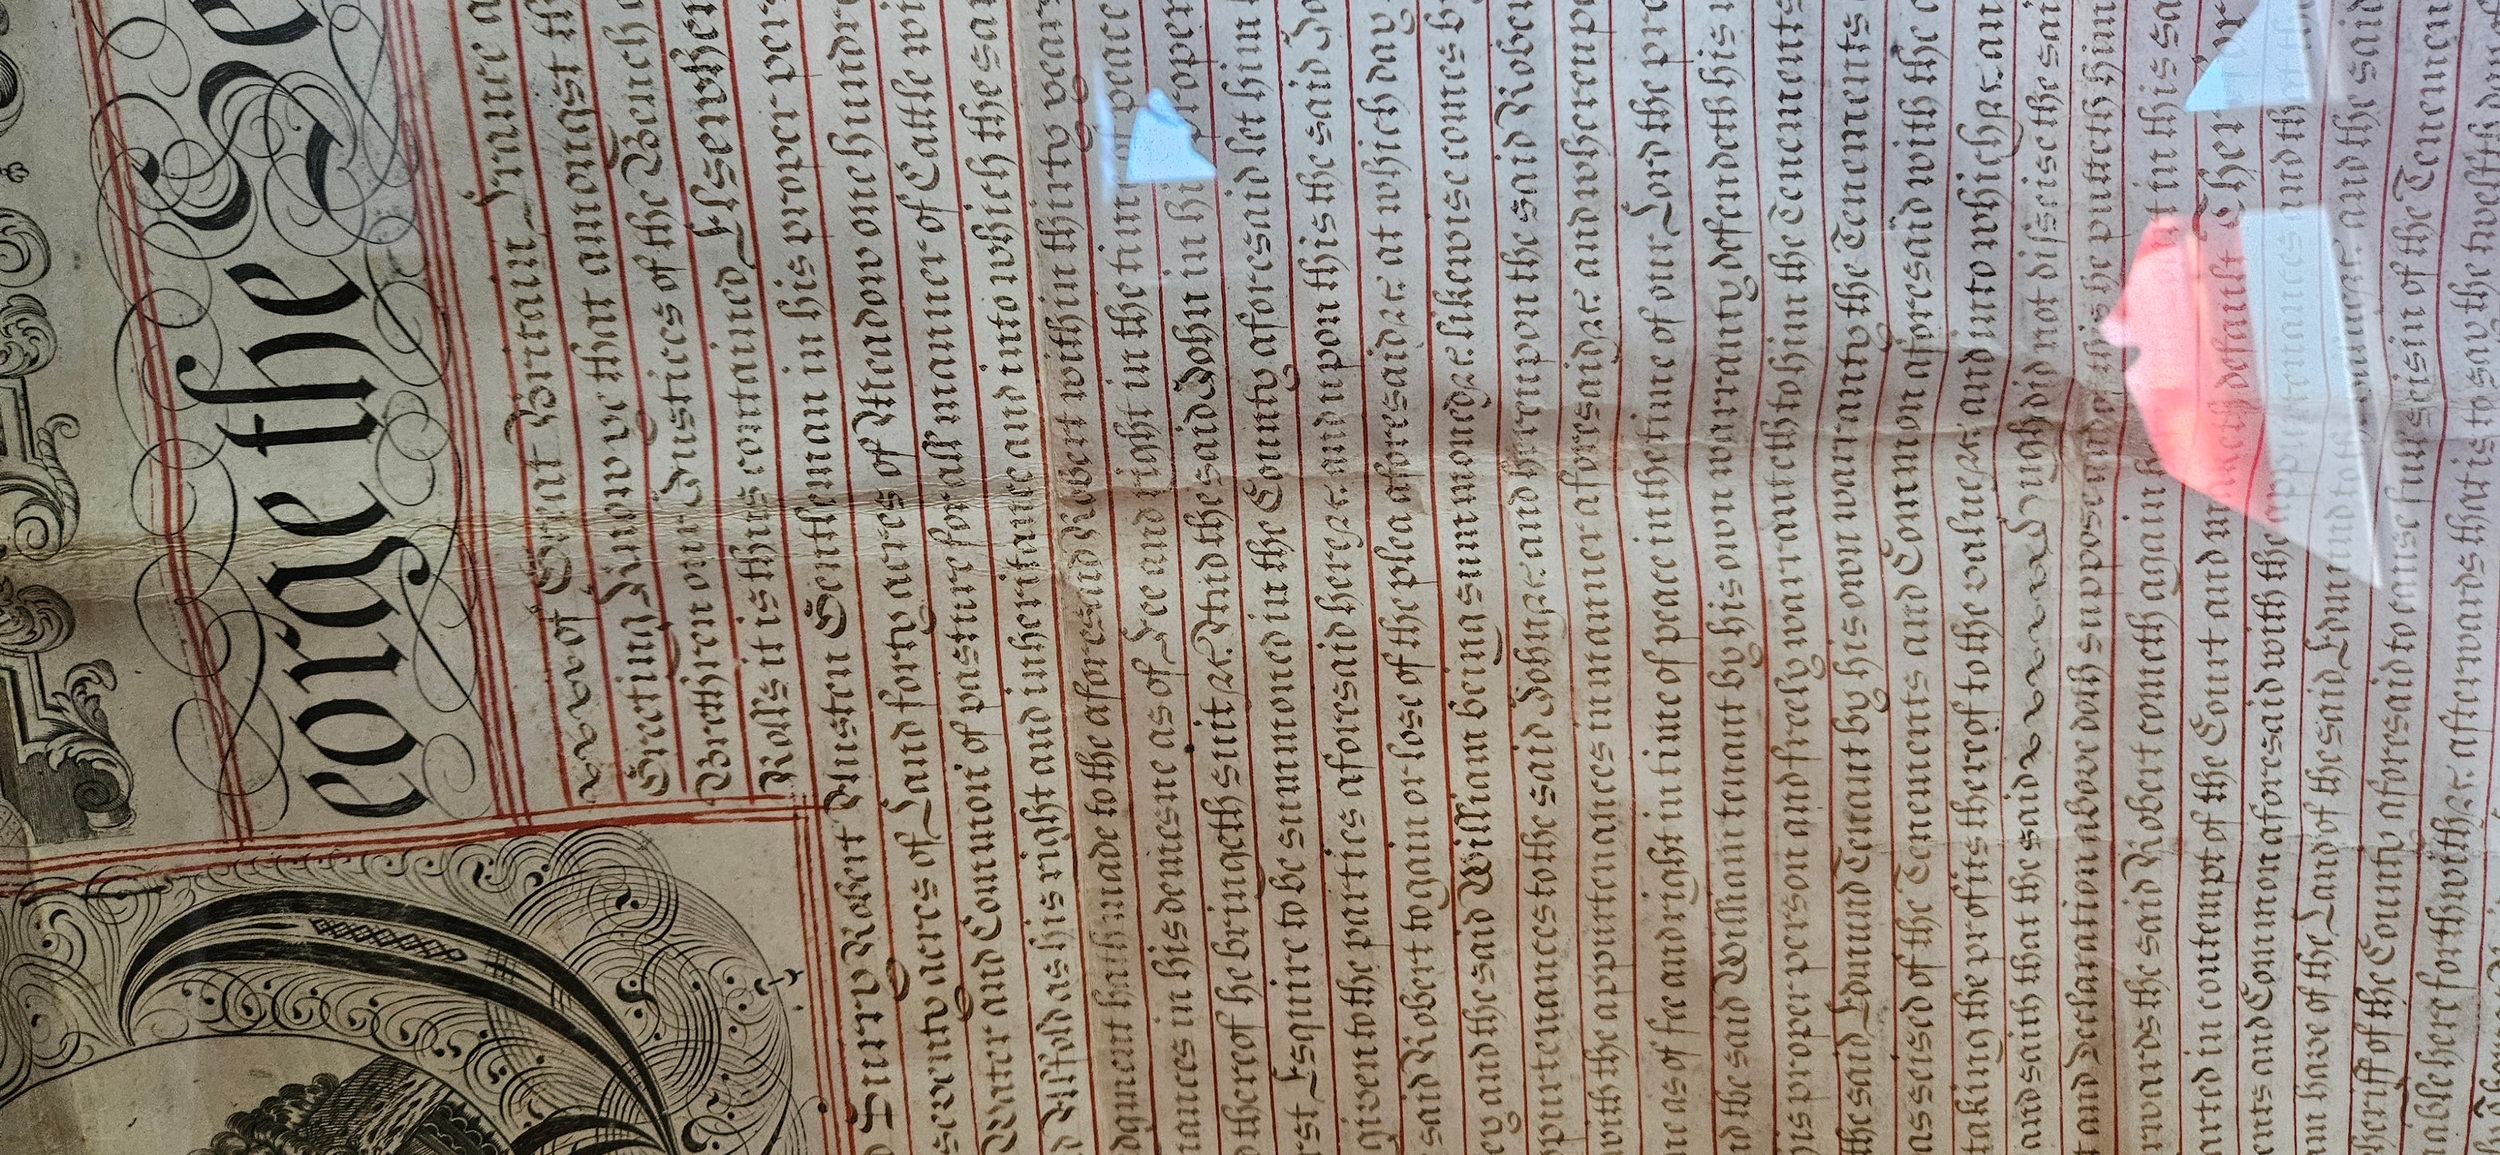 eorge the Se
of Great Britain France a
Greeting Know ye that amongst th
Brethren our Justices of the Bench
Rolls it is thus contained Essex
Surry Robert Austen Gentleman in his proper per
seventy acres of Land forty acres of Meadow one hundr
Water and Common of pasture for all manner of Cattle wi
d Alfold as his right and inheritance and into which the sa
dgment hath made to the aforesaid Robert within thirty year
nances in his demesne as of Fee and right in the time of peace
thereof he bringeth suit &c. And the said John in proper
rst Esquire to be summoned in the County aforesaid let him
given to the parties aforesaid here &c. and upon this the said Jo
said Robert to gain or lose of the plea aforesaid &c. at which day
ey and the said William being summoned &c. likewise comes by
purtenances to the said John &c. and hereupon the said Rober
with the appurtenances in manner aforesaid &c. and whereupo
ne as of fee and right in time of peace in the time of our Lord the pre
nd the said William tenant by his own warranty defendeth his
his proper person and freely warranteth to him the Tenements
the said Edmund Tenant by his own warranty the Tenements
as seised of the Tenements and Common aforesaid with the
taking the profits thereof to the value &c. and into which &c. an
and saith that the said Hugh did not disseise the sai
t and Declaration above doth suppose and of this he putteth him
rwards the said Robert cometh again in this sa
arted in contempt of the Court and maketh default Therefor
ents and Common aforesaid with the appurtenances and that th
im have of the Land of the said Edmund to the and the said
heriff of the County aforesaid to cause full seisin of the Tenemen
nable here forthwith &c. afterwards that is to say the twelfth day